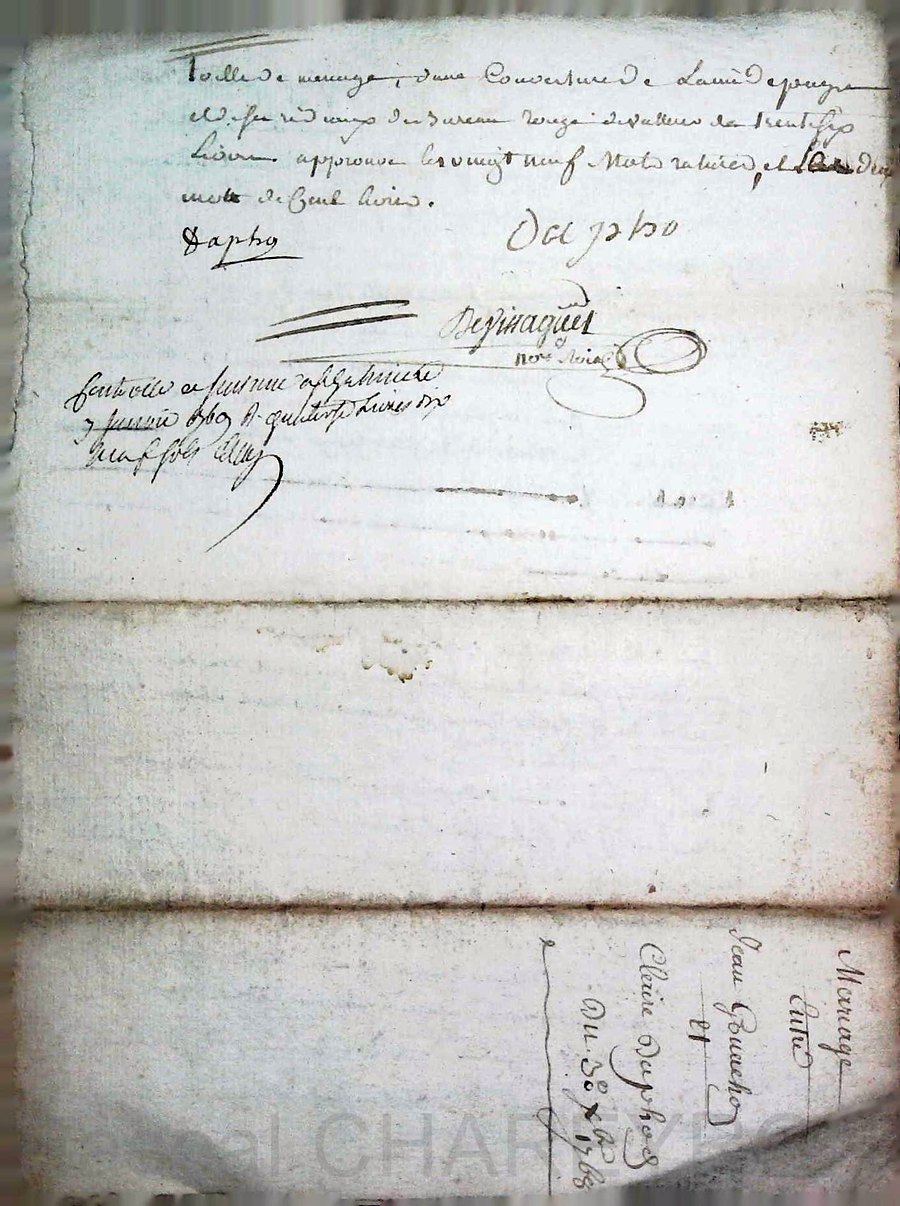 Toille de menage, dune Couverture de Laine depagne
et dis rideaux de bureau rouge de valleur de trente six
Livres approuve les vingt neuf Mots ratures, et deux
mots de Cent livres.
Dapho
Dapho
Devinaguet
nore Roial
Controllé a
janvier 1769 R quatorze Livres dix
neuf sols
Mariage
Entre
Jean Gouachon
et
Claire Daphos
Du 30 Xbre 1768
al CHAREYRO